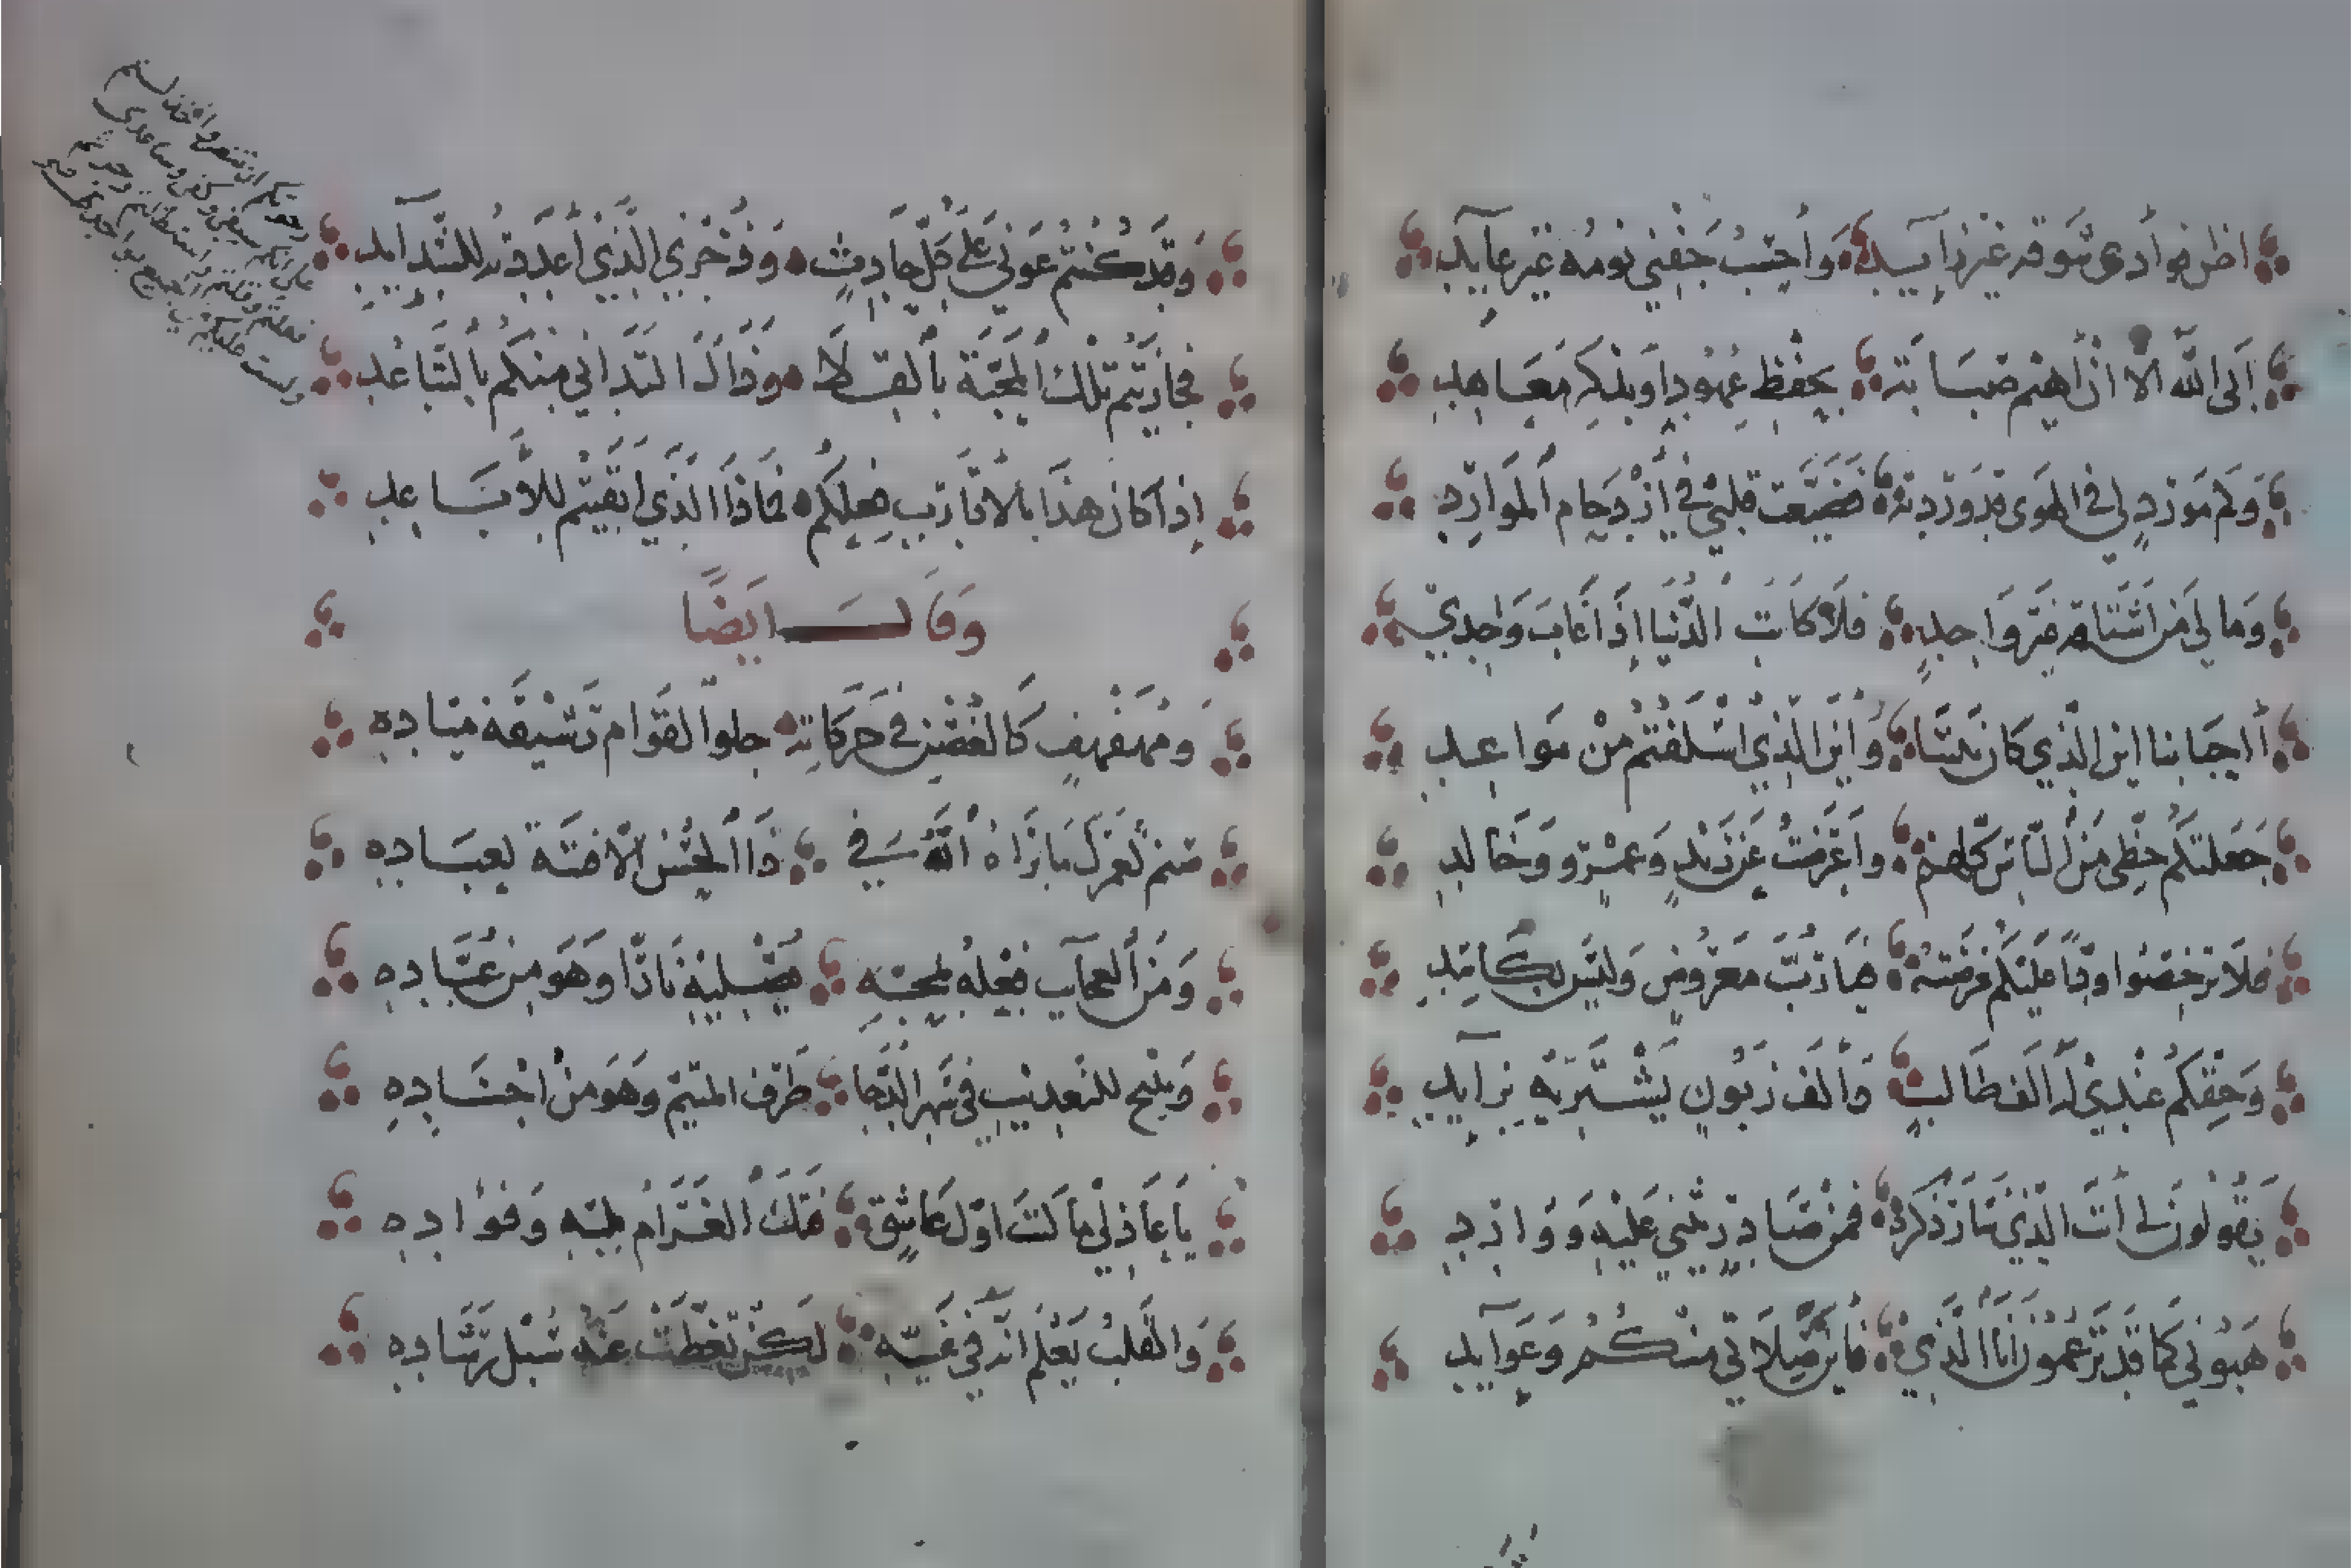 اظن فوأدى شوقه غير زايد وأحسب جفني نومه غير عايد
إلى الله الا ان أهيم صبابة بحفظ عهود أو بذكر معاهد
وكم مورد لي في الهوى قد وردته فضيعت قلبي في أزدحام الموارد
وما لي من اشتاقه غير واحد فلا كانت الدنيا إذا غاب واحدي
أاحبابنا اين الذي كان بيننا وأين الذي اسلفتم من مواعد
جعلتكم حظي من الناس كلهم واعرضت عن زيد وعمرو وخالد
فلا ترخصوا ودا عليكم عرضته فيا رب معروض وليس بكاسد
وحقكم عندي له الف طالب وألف زبون يشتريه بزايد
يقولون لي أنت الذي سار ذكره فمن صادر يثني عليه ووارد
هبوني كما قد تزعمون انا الذي فأين صلاتي منكم وعوايد
وقد كنتم عوني على كل حادث وذخري الذي اعددته للشدآيد
فجازيتم تلك المحبة بالقلا وذاك التداني منكم بالتباعد
إذا كان هذا بالاقارب فعلكم فماذا الذي ابقيتم للأباعد
وقال ايضا
ومهفهف كالغصن في حركاته حلو القوام رشيقه مياده
صنم لعمرك ما براه الله في ذا الحسن الا فتنة لعباده
ومن العجايب فعله بمحبه يصليه نارا وهو من عباده
ويبيح للتعذيب في سهر الدجا طرف المتيم وهو من اجناده
يا عاذلي ما كنت اول عاشق فتك الغرام بلبه وفؤاده
والقلب يعلم انه في غيه لكن تغطت عنه سبل رشاده